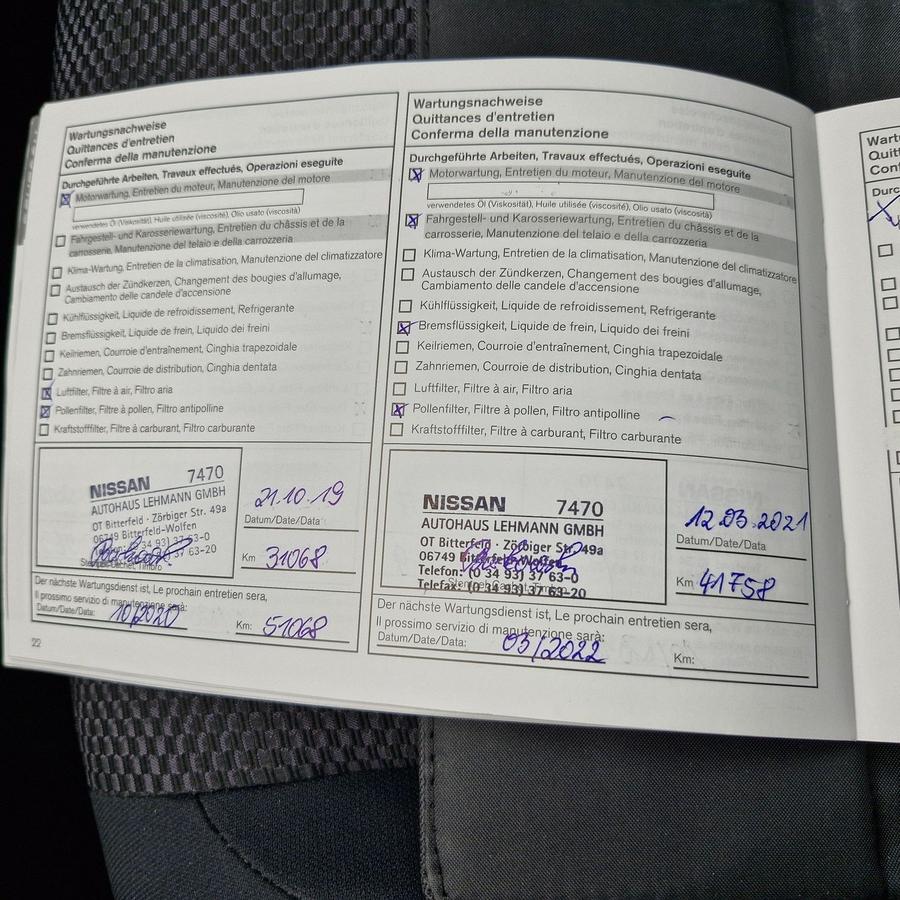 Wartungsnachweise
Quittances d'entretien
Conferma della manutenzione
Durchgeführte Arbeiten, Travaux effectués, Operazioni eseguite
Motorwartung, Entretien du moteur, Manutenzione del motore
verwendetes Öl (Viskosität), Huile utilisée (viscosité), Olio usato (viscosità)
Fahrgestell- und Karosseriewartung, Entretien du châssis et de la
carrosserie, Manutenzione del telaio e della carrozzeria
Klima-Wartung, Entretien de la climatisation, Manutenzione del climatizzatore
Austausch der Zündkerzen, Changement des bougies d'allumage,
Cambiamento delle candele d'accensione
Kühlflüssigkeit, Liquide de refroidissement, Refrigerante
Bremsflüssigkeit, Liquide de frein, Liquido dei freini
Keilriemen, Courroie d'entraînement, Cinghia trapezoidale
Zahnriemen, Courroie de distribution, Cinghia dentata
Luftfilter, Filtre à air, Filtro aria
Pollenfilter, Filtre à pollen, Filtro antipolline
Kraftstofffilter, Filtre à carburant, Filtro carburante
NISSAN 7470
AUTOHAUS LEHMANN GMBH
OT Bitterfeld · Zörbiger Str. 49a
06749 Bitterfeld-Wolfen
21.10.19
Datum/Date/Data
Km 31068
Der nächste Wartungsdienst ist, Le prochain entretien sera,
Il prossimo servizio di manutenzione sarà:
Datum/Date/Data: 10/2020 Km: 51068
22
Wartungsnachweise
Quittances d'entretien
Conferma della manutenzione
Durchgeführte Arbeiten, Travaux effectués, Operazioni eseguite
Motorwartung, Entretien du moteur, Manutenzione del motore
verwendetes Öl (Viskosität), Huile utilisée (viscosité), Olio usato (viscosità)
Fahrgestell- und Karosseriewartung, Entretien du châssis et de la
carrosserie, Manutenzione del telaio e della carrozzeria
Klima-Wartung, Entretien de la climatisation, Manutenzione del climatizzatore
Austausch der Zündkerzen, Changement des bougies d'allumage,
Cambiamento delle candele d'accensione
Kühlflüssigkeit, Liquide de refroidissement, Refrigerante
Bremsflüssigkeit, Liquide de frein, Liquido dei freini
Keilriemen, Courroie d'entraînement, Cinghia trapezoidale
Zahnriemen, Courroie de distribution, Cinghia dentata
Luftfilter, Filtre à air, Filtro aria
Pollenfilter, Filtre à pollen, Filtro antipolline
Kraftstofffilter, Filtre à carburant, Filtro carburante
NISSAN 7470
AUTOHAUS LEHMANN GMBH
OT Bitterfeld · Zörbiger Str. 49a
06749 Bitterfeld-Wolfen
Telefon: (0 34 93) 37 63-0
Telefax: (0 34 93) 37 63-20
12.03.2021
Datum/Date/Data
Km 41758
Der nächste Wartungsdienst ist, Le prochain entretien sera,
Il prossimo servizio di manutenzione sarà:
Datum/Date/Data: 03/2022 Km: